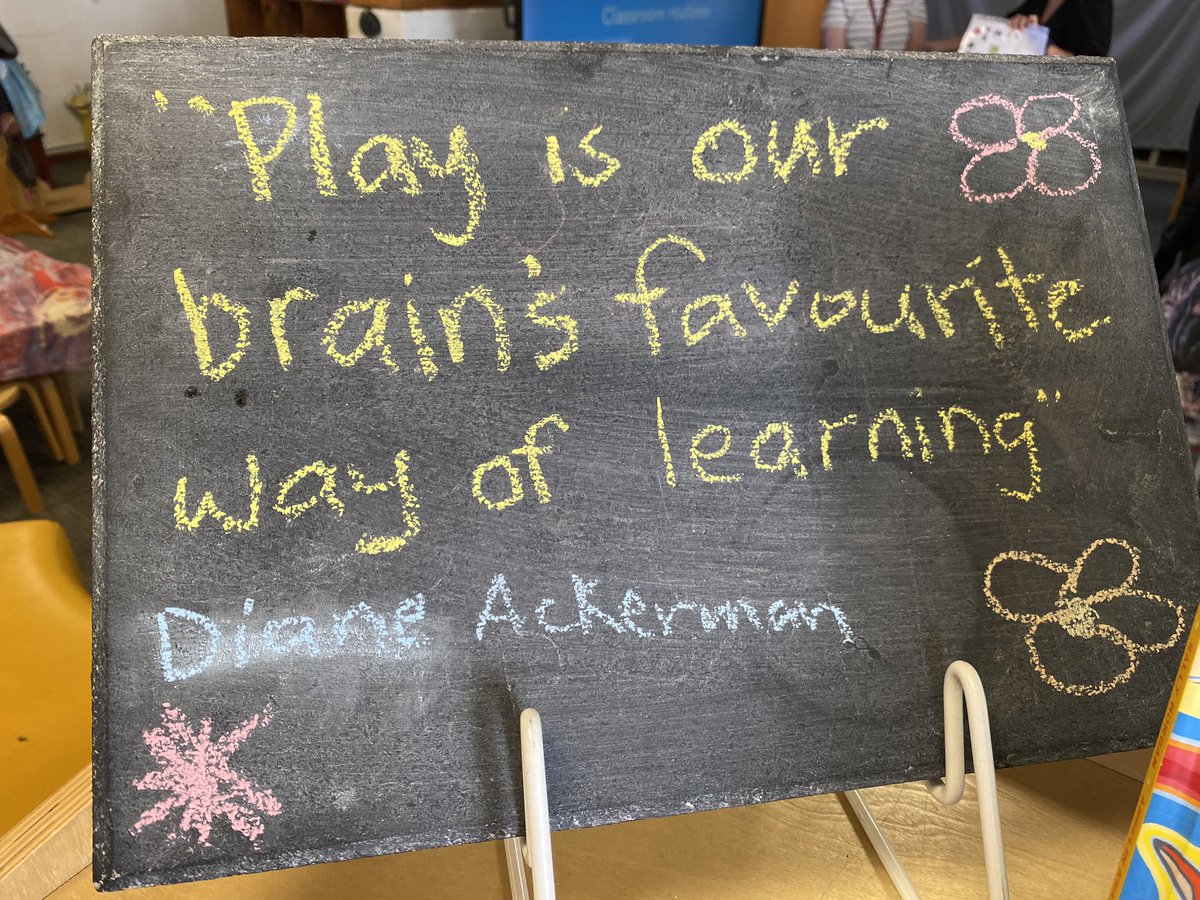 Classroom routines
"Play is our
brain's favourite
way of learning"
Diane Ackerman